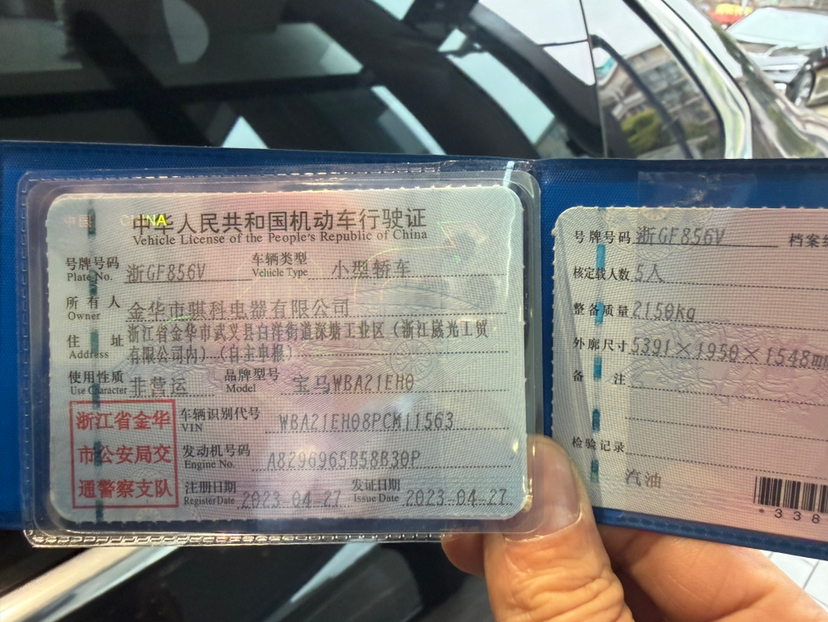 中国 CHINA
中华人民共和国机动车行驶证
Vehicle License of the People's Republic of China
号牌号码 浙GF856V 车辆类型 小型轿车
Plate No. Vehicle Type
所有人 金华市骐科电器有限公司
Owner
住址 浙江省金华市武义县白洋街道深塘工业区（浙江崴光工贸
Address 有限公司内）（自主申报）
使用性质 非营运 品牌型号 宝马WBA21EH0
Use Character Model
浙江省金华
市公安局交
通警察支队
车辆识别代号 WBA21EH08PCM11563
VIN
发动机号码 A8296965B58B30P
Engine No.
注册日期 2023-04-27 发证日期 2023-04-27
Register Date Issue Date
号牌号码 浙GF856V 档案编
核定载人数 5人
整备质量 2150kg
外廓尺寸 5391×1950×1548m
备注
检验记录
汽油
*338